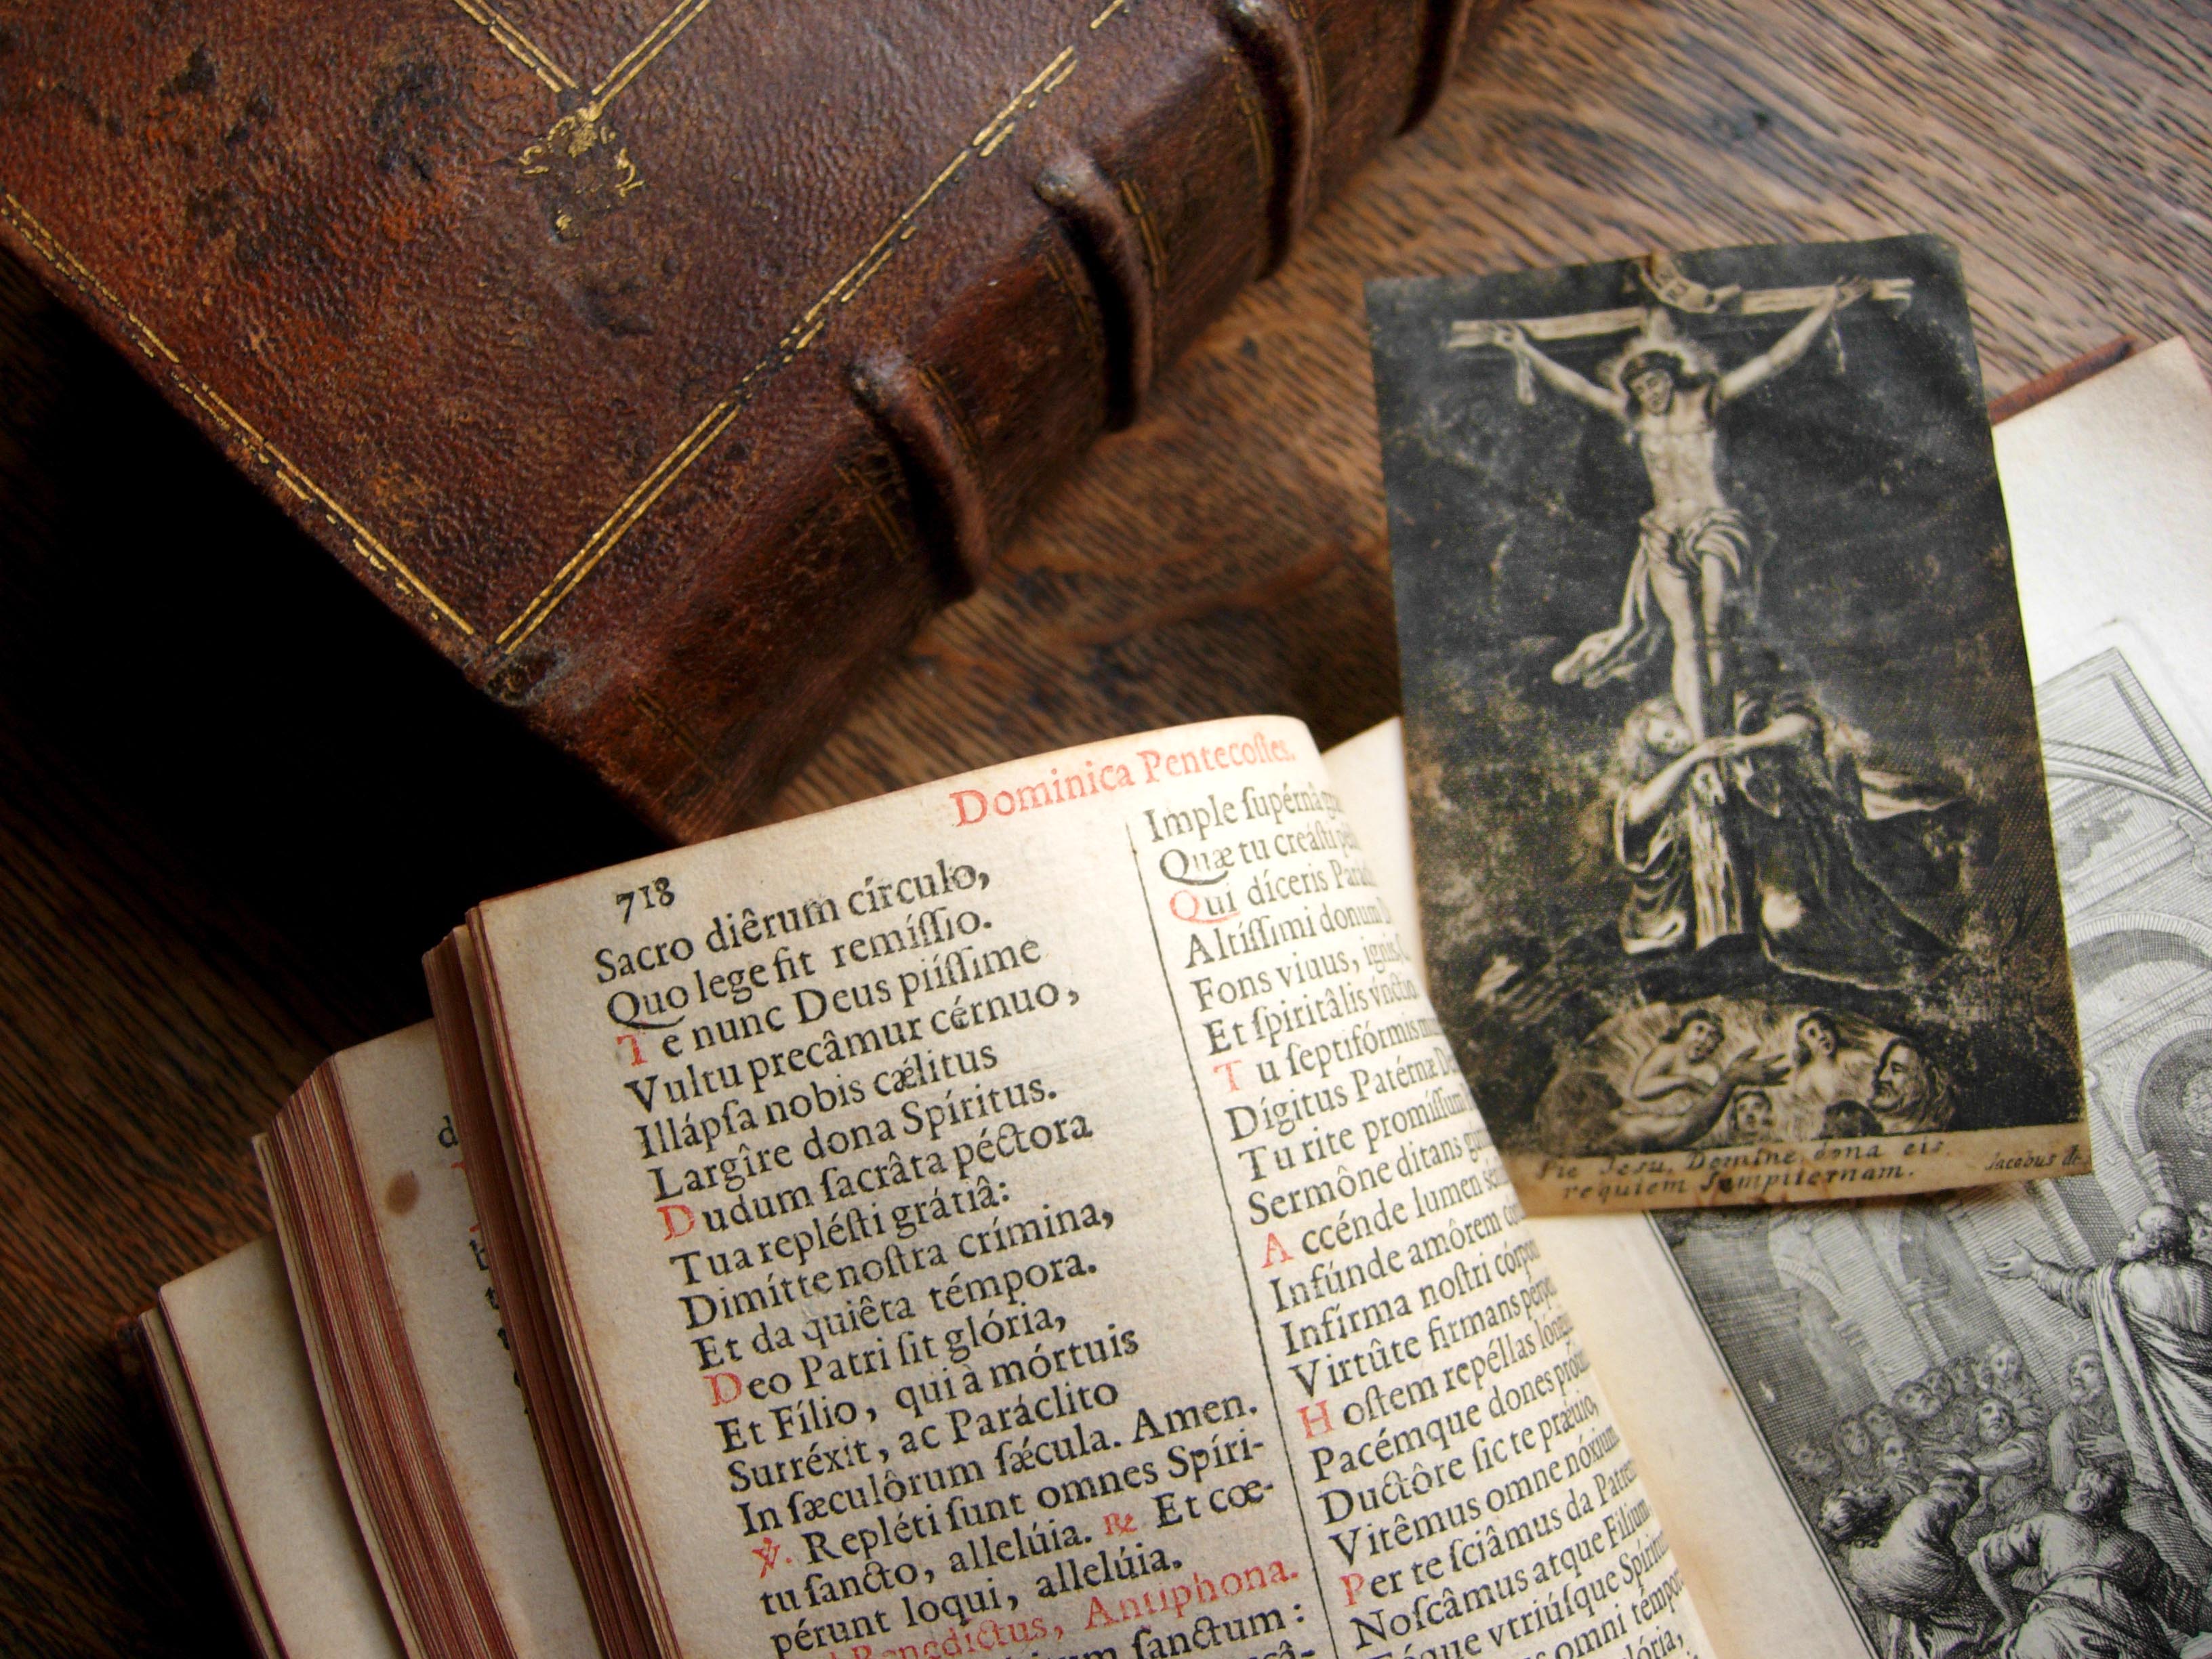 Dominica Pentecoſtes.
718
Sacro diêrum círculo,
Quo lege fit remíſſio.
Te nunc Deus piíſſime
Vultu precâmur cérnuo,
Illápſa nobis cælitus
Largîre dona Spíritus.
Dudum ſacrâta péctora
Tua repléſti grátiâ:
Dimítte noſtra crímina,
Et da quiêta témpora.
Deo Patri ſit glória,
Et Fílio, qui à mórtuis
Surréxit, ac Paráclito
In ſæculôrum ſǽcula. Amen.
℣. Repléti ſunt omnes Spíri-
tu ſancto, allelúia. ℟ Et cœ-
pérunt loqui, allelúia.
Benedíctus, Antiphona.
ſanctum:
Imple ſupérnâ
Quæ tu creáſti
Qui díceris
Altíſſimi donum
Fons viuus,
Et ſpiritâlis
Tu ſeptifórmis
Dígitus Patérnæ
Tu rite promíſſum
Sermône ditans
Accénde lumen
Infúnde amôrem
Infírma noſtri
Virtûte firmans
Hoſtem repéllas
Pacémque dones
Ductôre ſic te præuio,
Vitêmus omne nóxium
Per te ſciâmus da
Noſcâmus atque Fílium
vtriúſque
omni
Pie Jesu, Domine, dona eis
requiem sempiternam.
Jacobus de